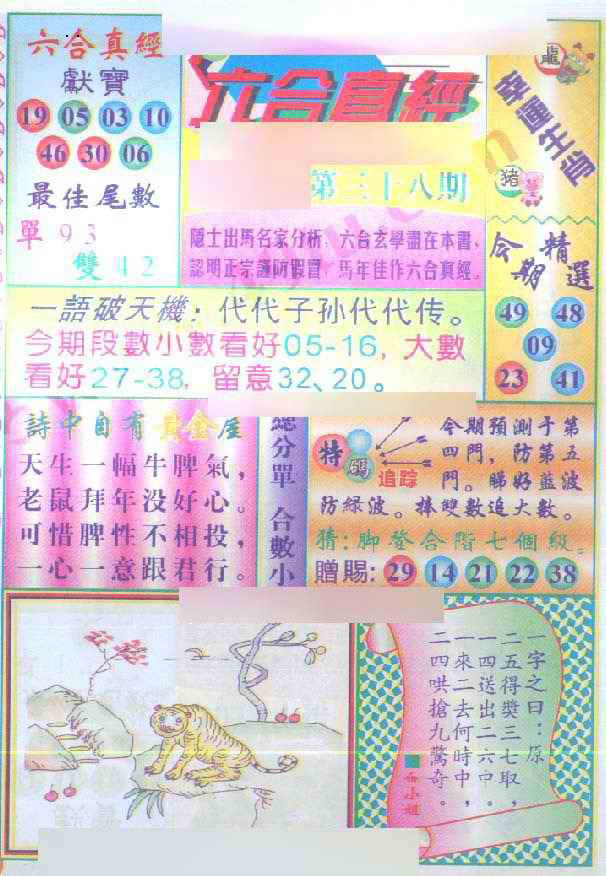 六合真經
獻寶
19 05 03 10
46 30 06
最佳尾數
單 9 3
雙 4 2
六合真經
第三十八期
隱士出馬名家分析，六合玄學盡在本書、
認明正宗謹防假冒，馬年佳作六合真經。
龍
幸運生肖
豬
今期精選
49 48
09
23 41
一語破天機：代代子孙代代传。
今期段數小數看好05-16，大數
看好27-38，留意32、20。
詩中自有黃金屋
天生一幅牛脾氣，
老鼠拜年没好心。
可惜脾性不相投，
一心一意跟君行。
總分單 合數小
特碼
追踪
今期預測于第
四門，防第五
門。睇好藍波
防綠波。捧雙數追大數。
猜：脚登合階七個級。
贈賜：29 14 21 22 38
一字之曰：原
二五得獎三七取，
一四送出二六中。
一來二去何時中，
二四哄搶九驚奇。